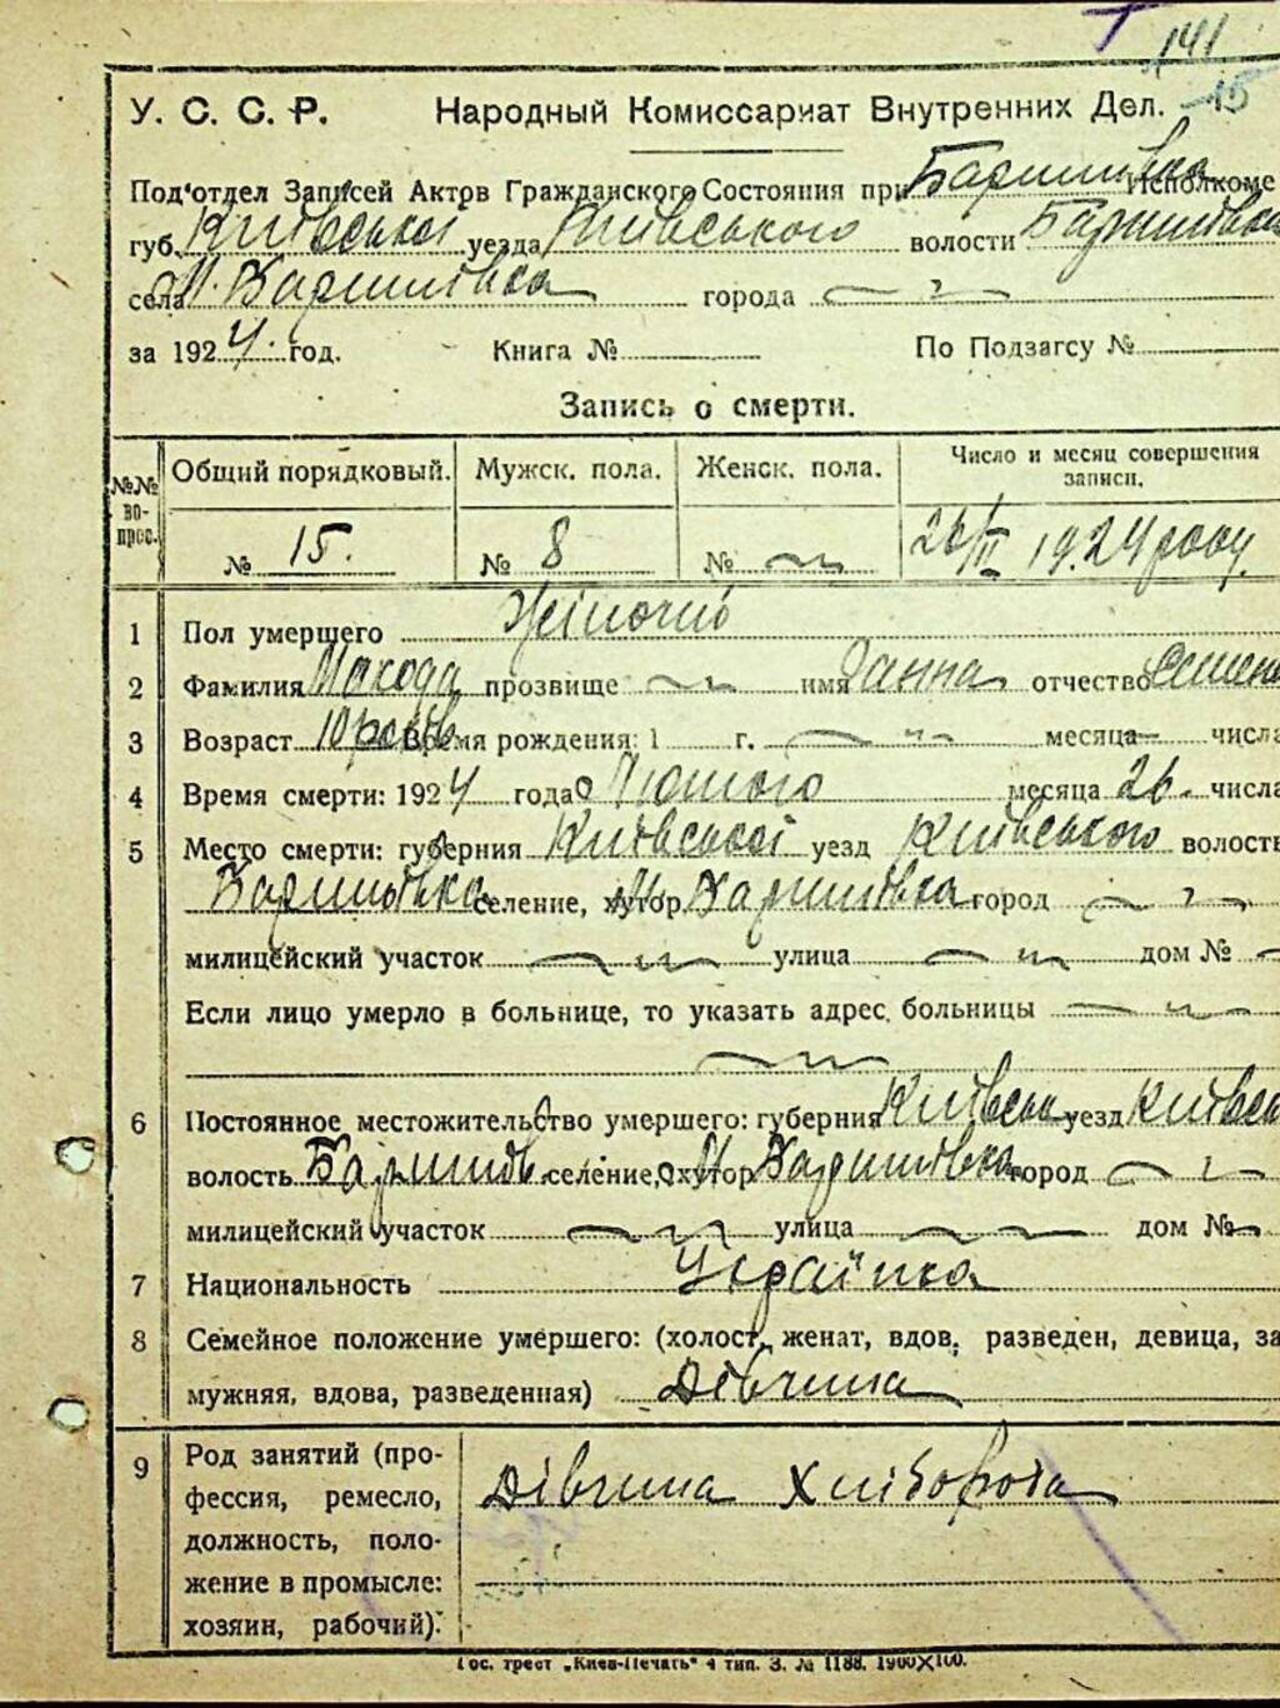 141
15
У. С. С. Р. Народный Комиссариат Внутренних Дел.
Под'отдел Записей Актов Гражданского Состояния при Баришівка Исполкоме
губ. Київської уезда Київського волости Баришівськ
села М. Баришівка города
за 1924. год. Книга № По Подзагсу №
Запись о смерти.
№№ во-прос. Общий порядковый. Мужск. пола. Женск. пола. Число и месяц совершения записи.
№ 15. № 8 № 26/II 1924 року.
1 Пол умершего Жіночий
2 Фамилия Макода прозвище имя Ганна отчество Семен
3 Возраст 10 років Время рождения: 1 г. месяца числа
4 Время смерти: 1924 года Лютого месяца 26. числа
5 Место смерти: губерния Київської уезд Київського волость
Баришівка селение, хутор М. Баришівка город
милицейский участок улица дом №
Если лицо умерло в больнице, то указать адрес больницы
6 Постоянное местожительство умершего: губерния Київськ уезд Київськ
волость Баришів селение, хутор М. Баришівка город
милицейский участок улица дом №
7 Национальность Українка
8 Семейное положение умершего: (холост, женат, вдов, разведен, девица, за
мужняя, вдова, разведенная) Дівчина
9 Род занятий (про-
фессия, ремесло, Дівчина Хлібороба
должность, поло-
жение в промысле:
хозяин, рабочий).
Гос. трест „Киев-Печать" 4 тип. З. № 1188. 1900X100.